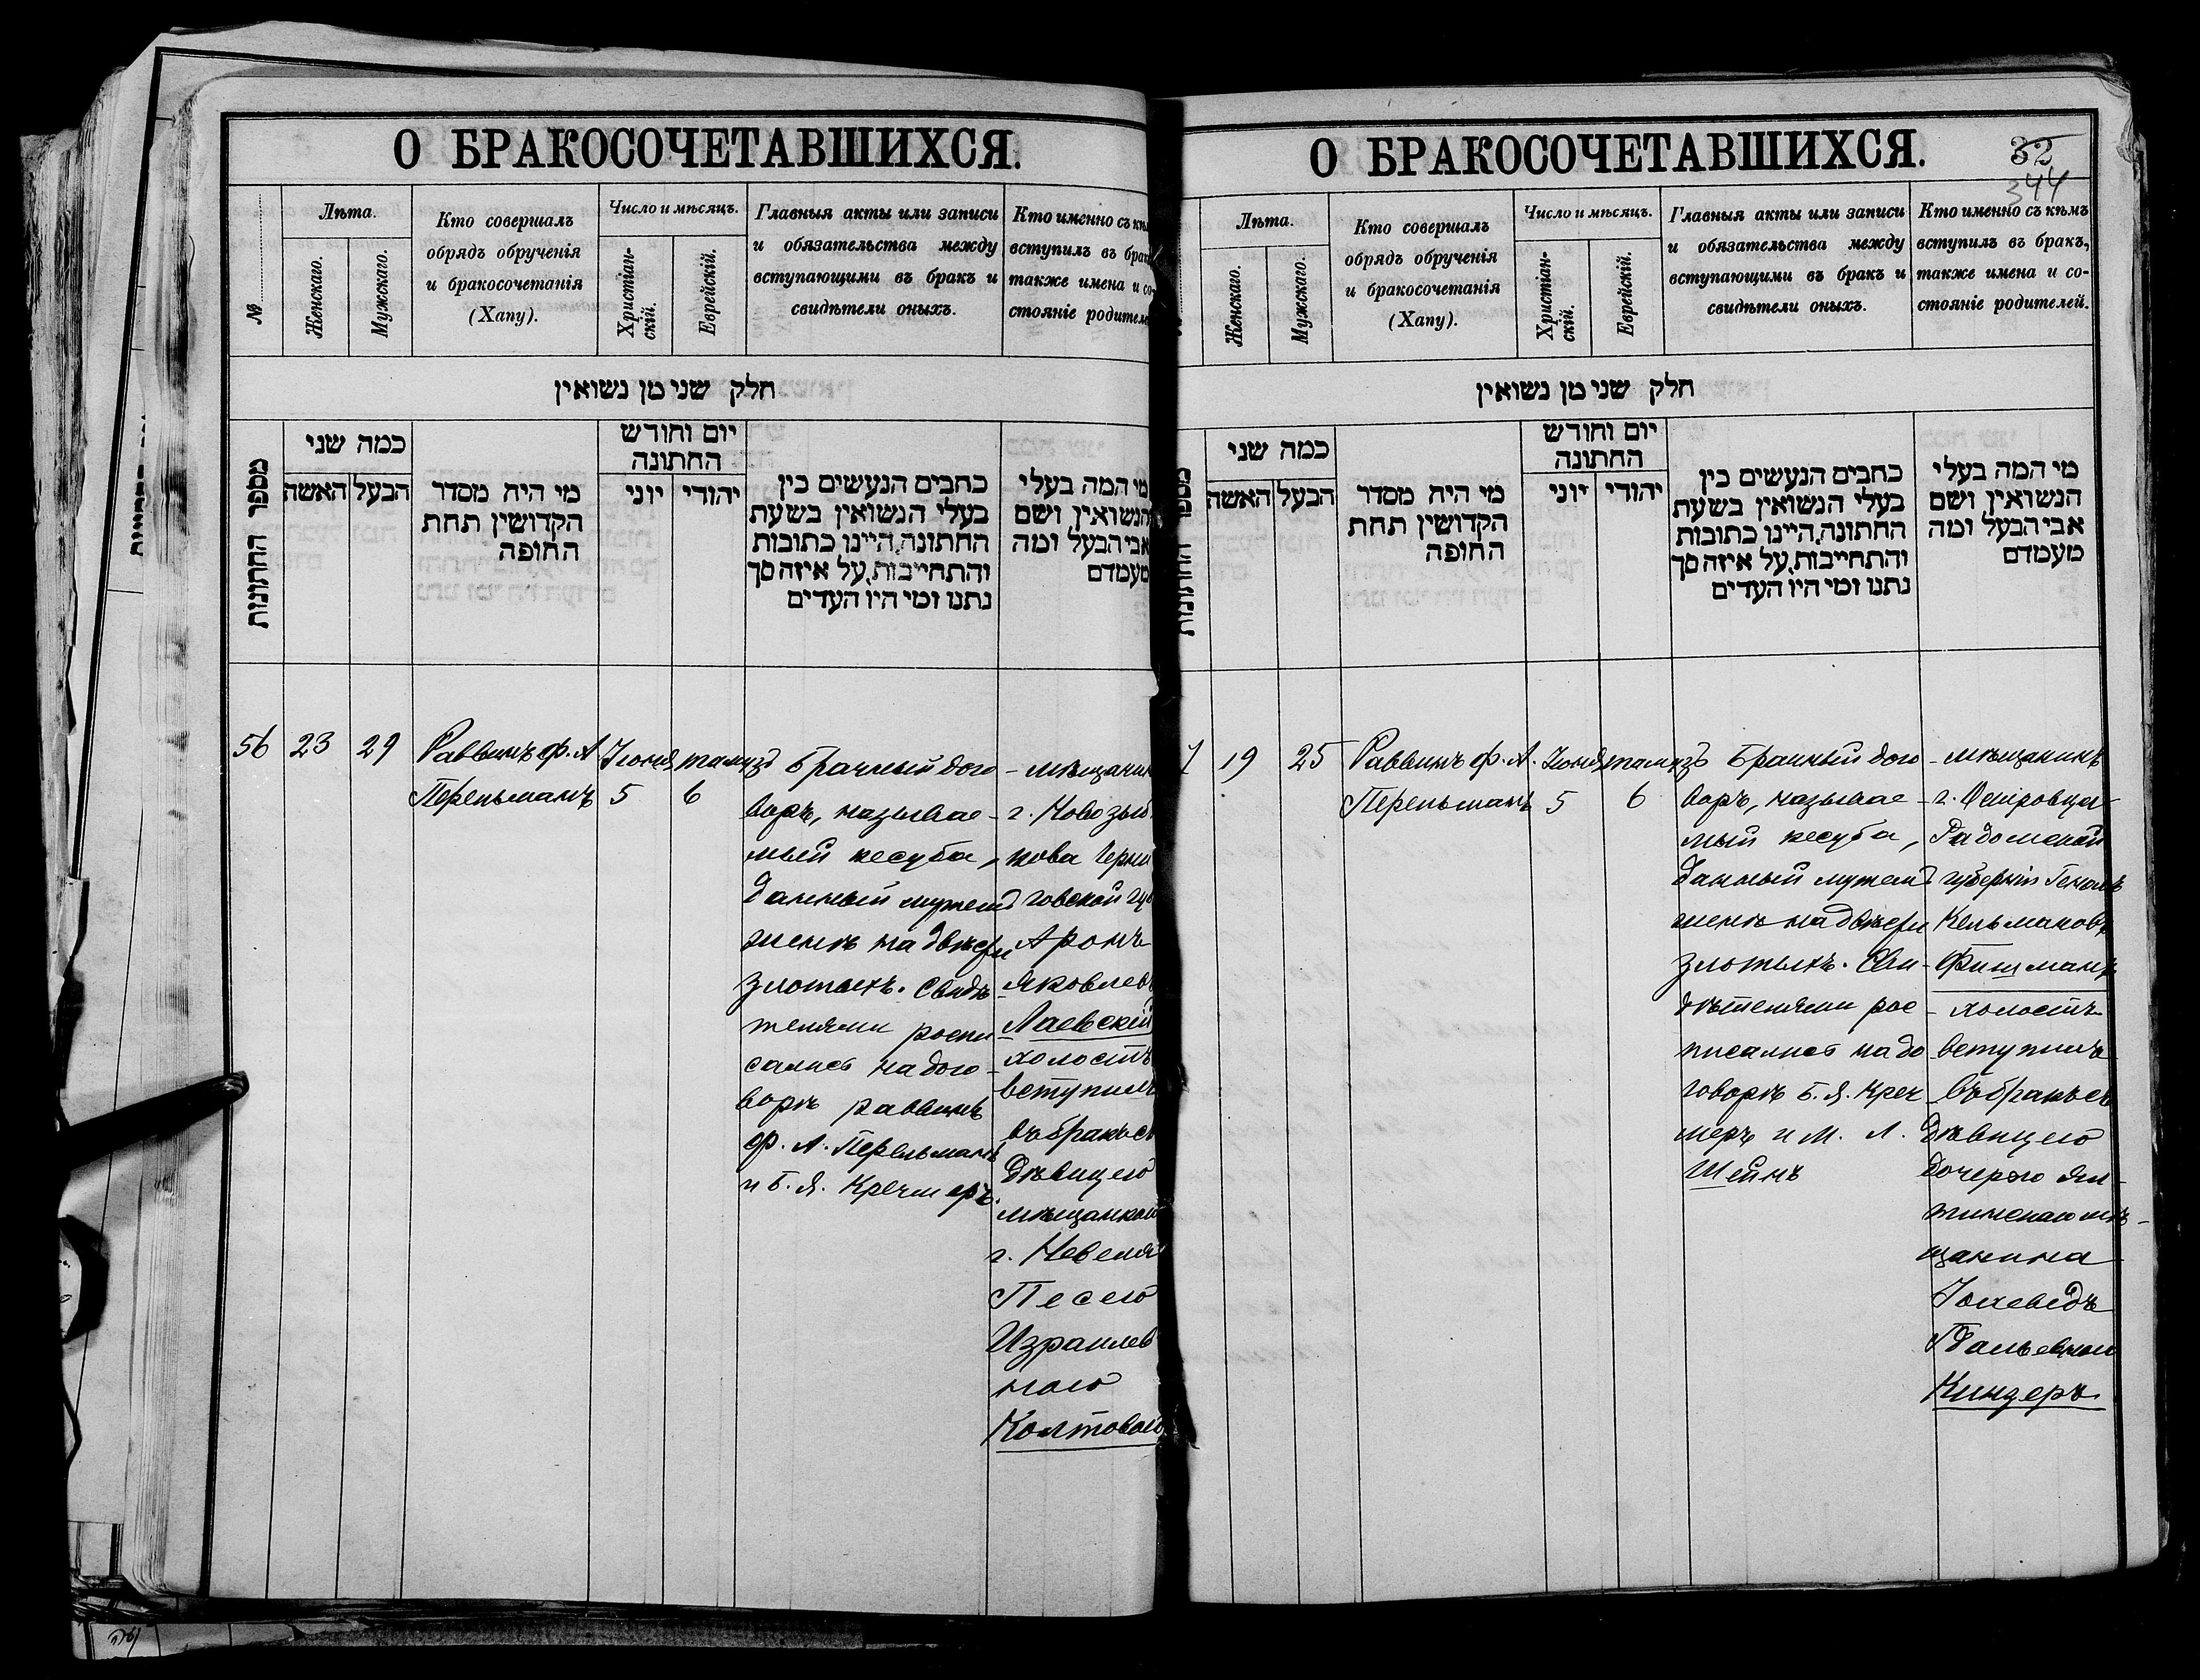 О БРАКОСОЧЕТАВШИХСЯ.
№
Лѣта.
Женскаго.
Мужскаго.
Кто совершалъ
обрядъ обрученія
и бракосочетанія
(Хапу).
Число и мѣсяцъ.
Христіан-
скій.
Еврейскій.
Главныя акты или записи
и обязательства между
вступающими въ бракъ и
свидѣтели оныхъ.
Кто именно съ
вступилъ въ
также имена и со-
стояніе
חלק שני מן נשואין
מספר החתונות
כמה שני
הבעל
האשה
מי היה מסדר
הקדושין תחת
החופה
יום וחודש
החתונה
יהודי
יוני
כתבים הנעשים בין
בעלי הנשואין בשעת
החתונה, היינו כתובות
והתחייבות, על איזה סך
נתנו ומי היו העדים
מי המה בעלי
הנשואין ושם
אבי הבעל ומה
מעמדם
56
23
29
Раввинъ Ф. А
Перельманъ
Іюня
5
тамузъ
6
Брачный дого-
воръ, называе-
мый кесуба,
данный мужемъ
женѣ на двѣсти
злотыхъ. Свидѣ
телями роспи
сались на дого-
ворѣ раввинъ
Ф. А. Перельманъ
и Б. Я. Кречмеръ.
мѣщанинъ
г. Новозыб
кова Черни
говской губ
Аронъ
Яковлевъ
Лаевскій
холостъ
вступилъ
въ бракъ съ
дѣвицею
мѣщанкой
г. Невеля
Песею
Израилев
ною
Колтовою
О БРАКОСОЧЕТАВШИХСЯ.
32
344
Лѣта.
Женскаго.
Мужскаго.
Кто совершалъ
обрядъ обрученія
и бракосочетанія
(Хапу).
Число и мѣсяцъ.
Христіан-
скій.
Еврейскій.
Главныя акты или записи
и обязательства между
вступающими въ бракъ и
свидѣтели оныхъ.
Кто именно съ кѣмъ
вступилъ въ бракъ,
также имена и со-
стояніе родителей.
חלק שני מן נשואין
כמה שני
הבעל
האשה
מי היה מסדר
הקדושין תחת
החופה
יום וחודש
החתונה
יהודי
יוני
כתבים הנעשים בין
בעלי הנשואין בשעת
החתונה, היינו כתובות
והתחייבות, על איזה סך
נתנו ומי היו העדים
מי המה בעלי
הנשואין ושם
אבי הבעל ומה
מעמדם
19
25
Раввинъ Ф. А.
Перельманъ
Іюня
5
тамузъ
6
Брачный дого-
воръ, называе-
мый кесуба,
данный мужемъ
женѣ на двѣсти
злотыхъ. Сви-
дѣтелями рос-
писались на до
говорѣ Б. Я. Креч
меръ и М. Л.
Шейнъ
мѣщанинъ
г. Островца
Радомской
губерніи
Кельмановъ
Фишманъ
холостъ
вступилъ
въ бракъ съ
дѣвицею
дочерью Ям-
тинскаго мѣ-
щанина
Іохеведъ
Гдальевною
Кинзеръ